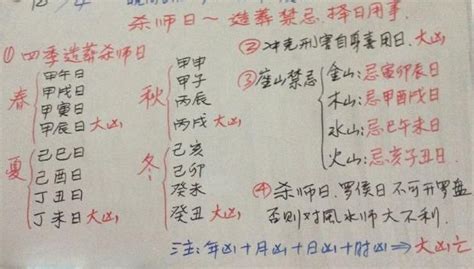 12/4
杀师日～造葬禁忌,择日用事.
① 四季造葬杀师日
春
甲午日
甲戌日
甲寅日
甲辰日大凶
夏
己巳日
己酉日
丁丑日
丁未日大凶
秋
甲申
甲子
丙辰
丙戌大凶
冬
己亥
己卯
癸未
癸丑大凶
② 冲克刑害自身妻用日.大凶
③ 座山禁忌
金山:忌寅卯辰日
木山:忌甲酉戌日
水山:忌巳午未日
火山:忌亥子丑日.
④ 杀师日.罗侯日不可开罗盘
否则对风水师大不利.
注:年凶+月凶+日凶+时凶⇒大凶亡